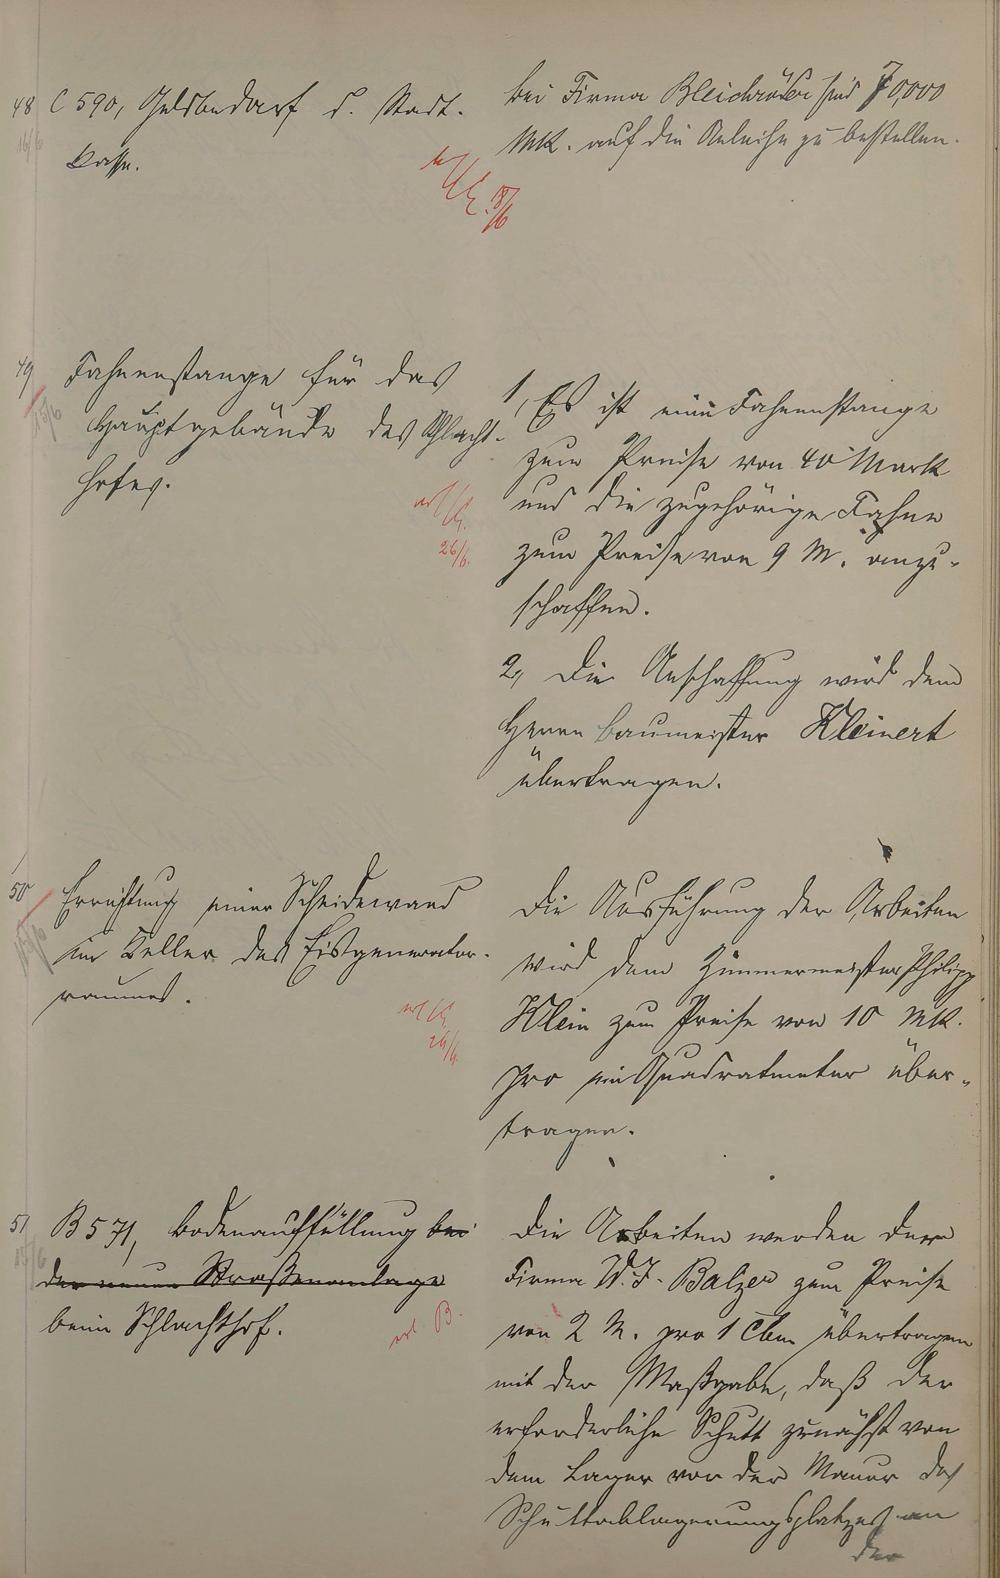 48 C 590, Geldbedarf d. Stadt-
kasse.
bei Firma Bleichröder sind 70,000
MK. auf die Anleihe zu bestellen.
18/6
49 Fahnenstange für das
Hauptgebäude des Schlacht-
hofes.
26/6.
1, Es ist eine Fahnenstange
zum Preise von 40 Mark
und die zugehörige Fahne
zum Preise von 9 M. anzu-
schaffen.
2, Die Anschaffung wird dem
Herrn Baumeister Kleinert
übertragen.
50 Errichtung einer Scheidewand
im Keller des Eisgenerator-
raumes.
26/6.
Die Ausführung der Arbeiten
wird dem Zimmermeister Philipp
Klein zum Preise von 10 MK.
pro ein Quadratmeter über-
tragen.
51 B 571, Bodenauffüllung bei
der neuen Straßenanlage
beim Schlachthof.
erl. B.
Die Arbeiten werden der
Firma W. J. Balzer zum Preise
von 2 M. pro 1 Cbm übertragen
mit der Maßgabe, daß der
erforderliche Schutt zunächst von
dem Lager vor der Mauer des
Schuttablagerungsplatzes an
der